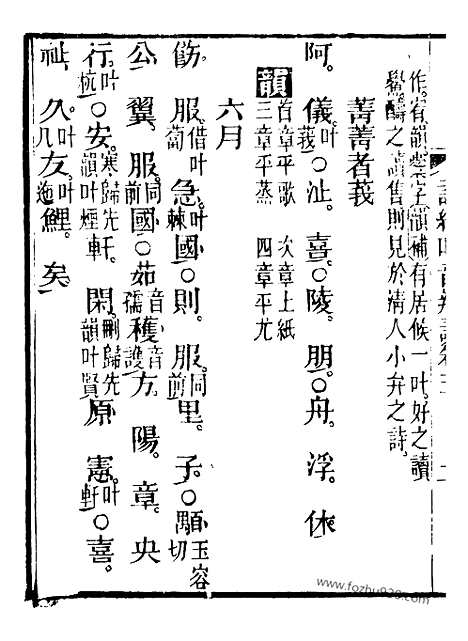 作。宥韻。禦字韻補有居候一叶。好之讀
醻之讀售。則見於清人小弁之詩。
菁菁者莪
阿。儀叶莪○沚。喜。○陵。朋。○舟。浮。休
韻 首章平歌 次章上紙
三章平蒸 四章平尤
六月
飭。服借叶蔔。急叶棘國○則。服同前里。子。○顒玉容切
公。翼。服同前國○茹音孺穫音護方。陽。章。央
行叶杭○安。寒歸先韻叶煙軒。閑刪歸先韻叶賢原。憲叶軒○喜。
祉。久叶几友叶迤鯉。矣
www.fozhu920.com